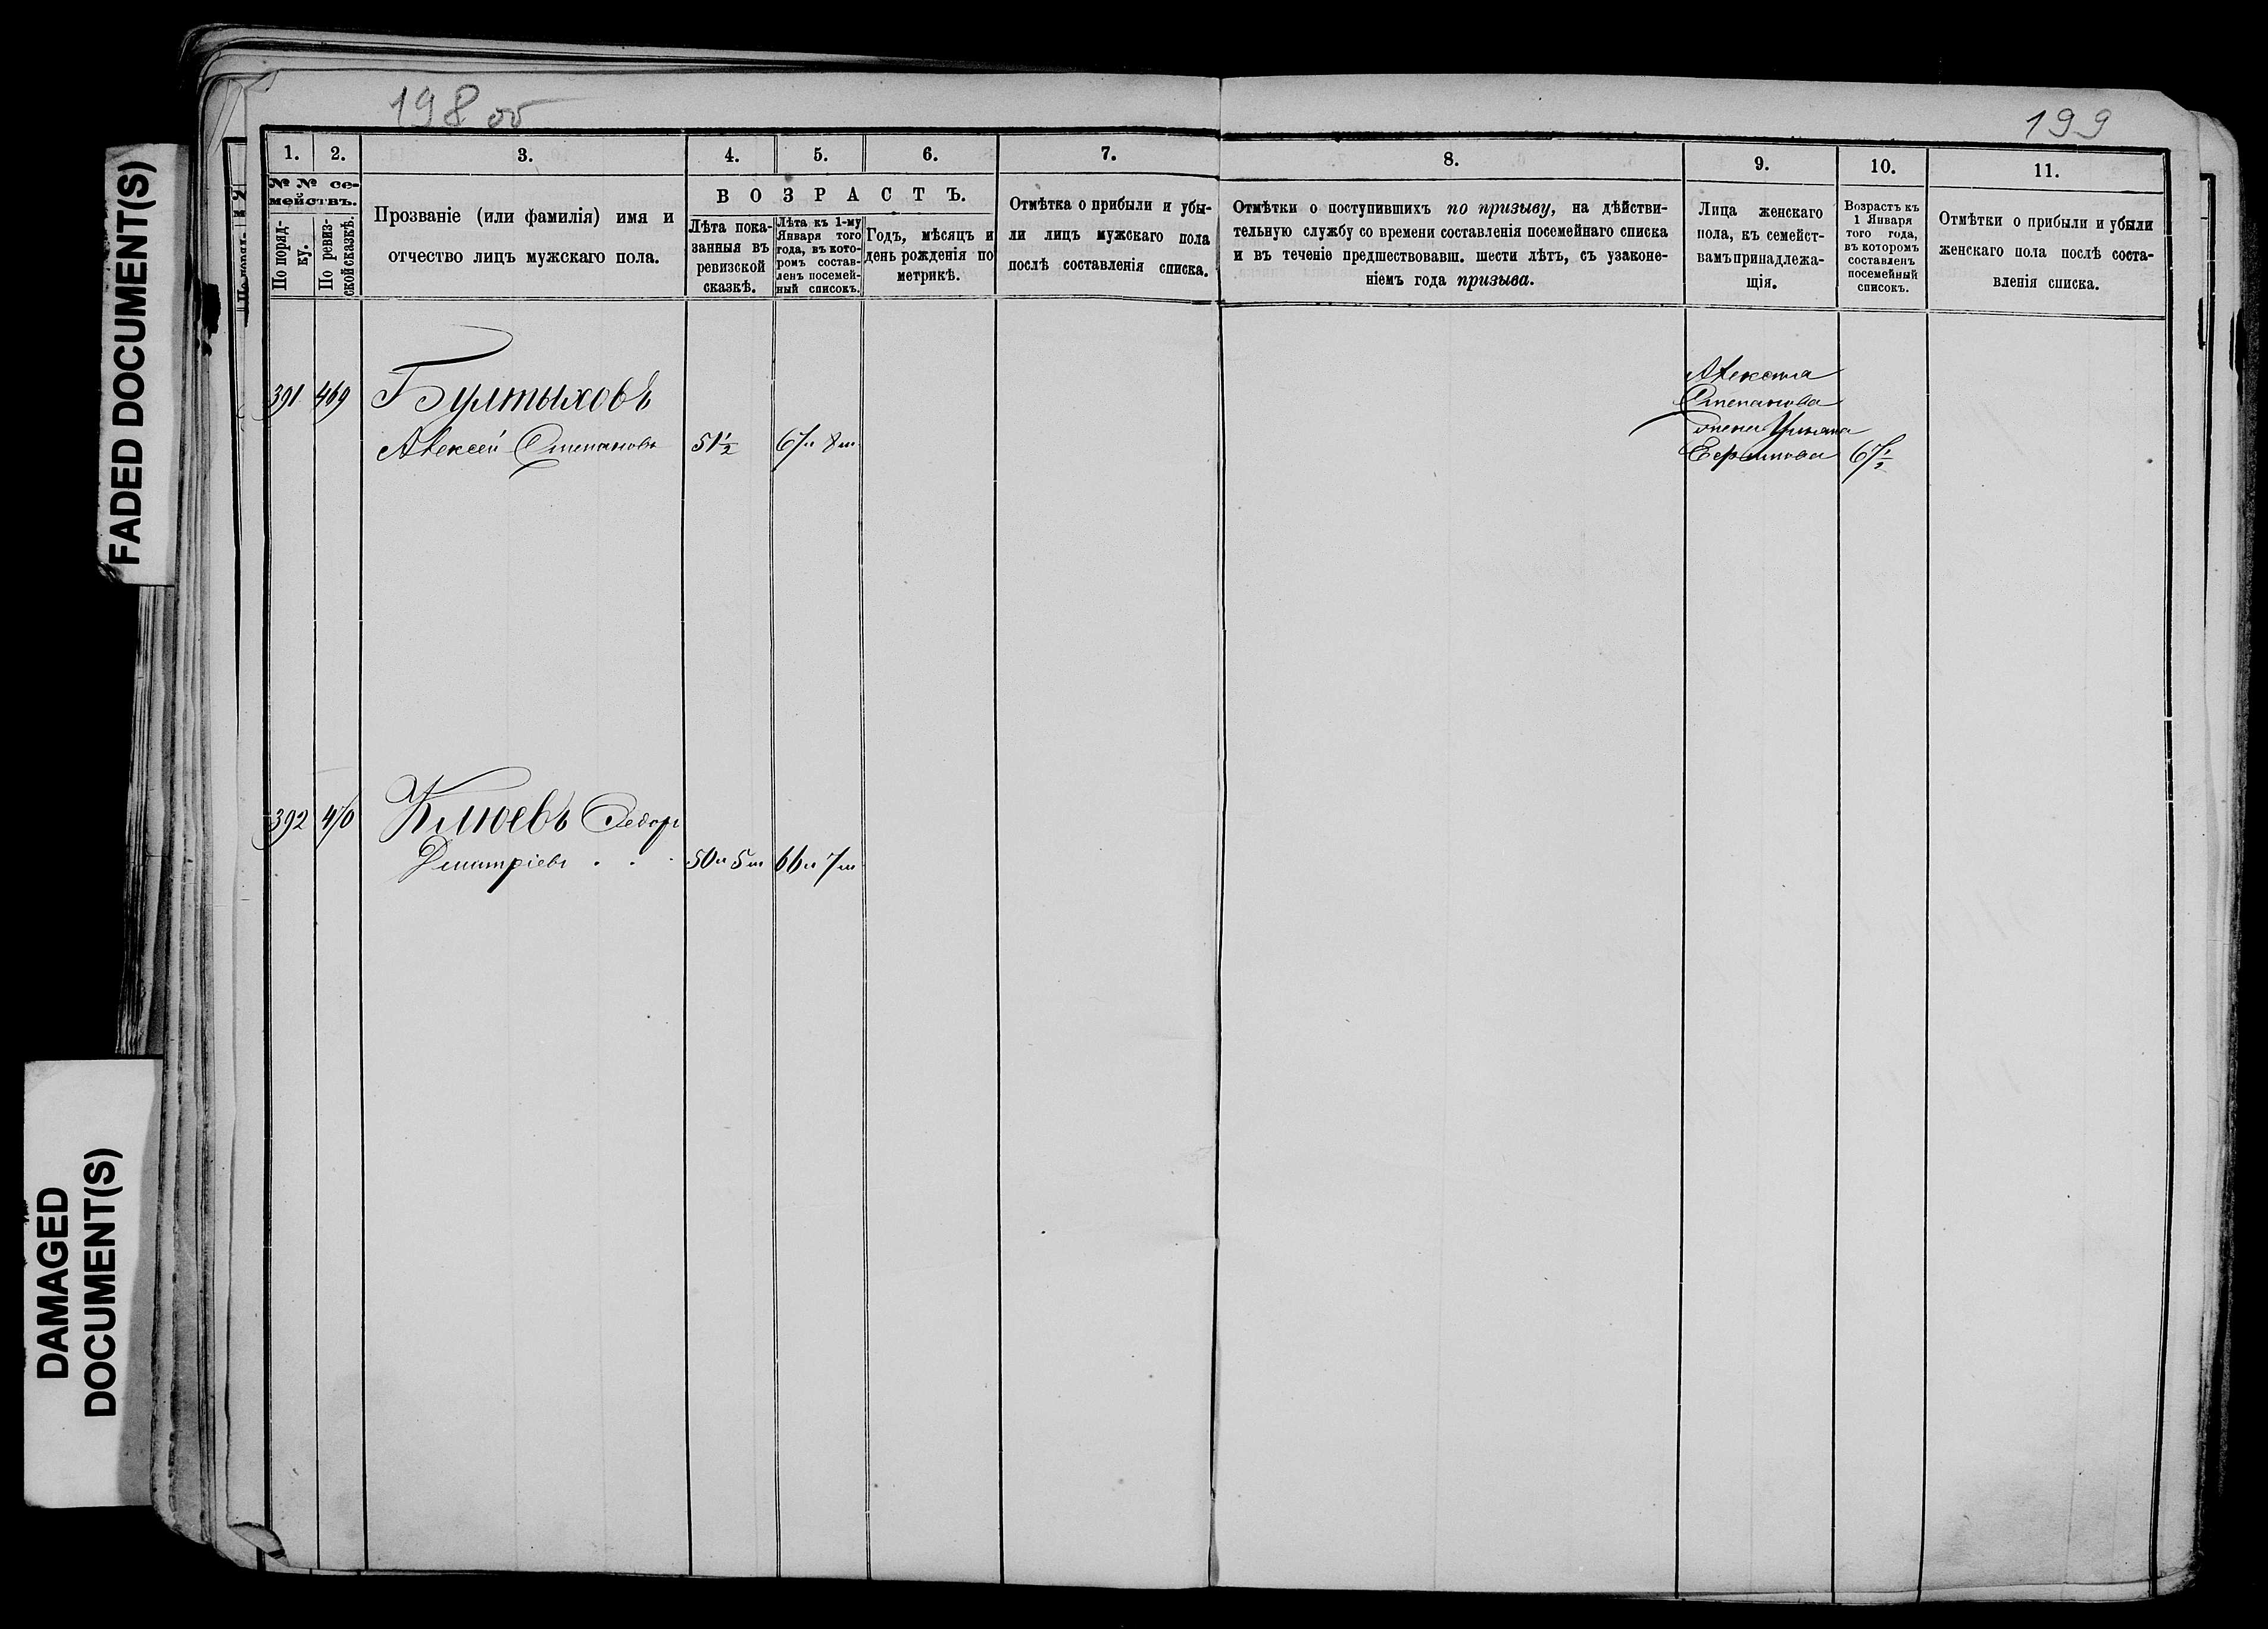 FADED DOCUMENT(S)
DAMAGED
DOCUMENT(S)
198 об
199
1. 2. 3. 4. 5. 6. 7. 8. 9. 10. 11.
№ № се-
мействъ.
По поряд-
ку.
По ревиз-
ской сказкѣ.
Прозваніе (или фамилія) имя и
отчество лицъ мужскаго пола.
ВОЗРАСТЪ.
Лѣта пока-
занныя въ
ревизской
сказкѣ.
Лѣта къ 1-му
Января того
года, въ кото-
ромъ состав-
ленъ посемей-
ный списокъ.
Годъ, мѣсяцъ и
день рожденія по
метрикѣ.
Отмѣтка о прибыли и убы-
ли лицъ мужскаго пола
послѣ составленія списка.
Отмѣтки о поступившихъ по призыву, на дѣйстви-
тельную службу со времени составленія посемейнаго списка
и въ теченіе предшествовавш. шести лѣтъ, съ узаконе-
ніемъ года призыва.
Лица женскаго
пола, къ семейст-
вамъ принадлежа-
щія.
Возрастъ къ
1 Января
того года,
въ которомъ
составленъ
посемейный
списокъ.
Отмѣтки о прибыли и убыли
женскаго пола послѣ соста-
вленія списка.
391 469 Бултыховъ
Алексей Степановъ 51 1/2 67 л 8 м
Алексѣя
Степанова
жена
Ефимова 67 1/2
392 470 Клюевъ Федоръ
Дмитріевъ . . . 50 л 5 м 66 л 7 м